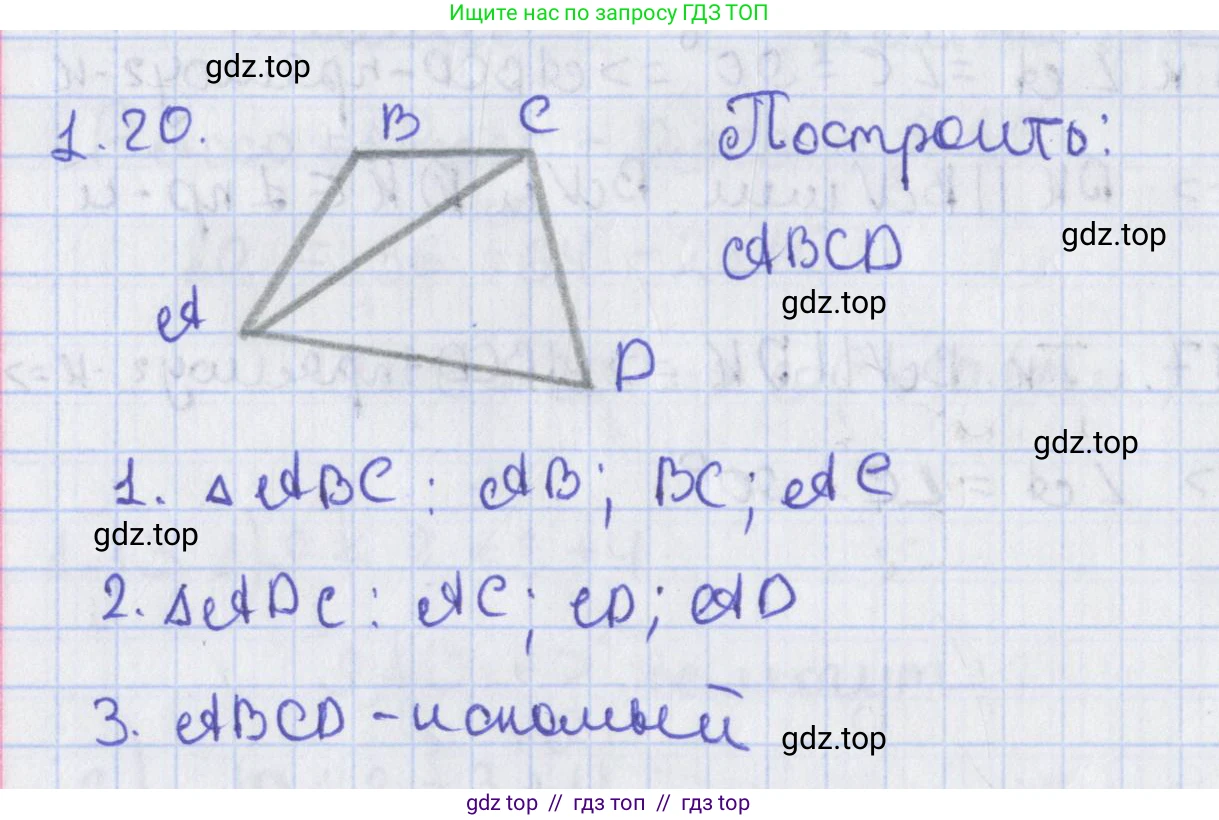 Ищите нас по запросу ГДЗ ТОП
gdz.top
1.20.
B
C
Построить:
ABCD
gdz.top
gdz.top
A
D
gdz.top
1. △ABC: AB; BC; AC
gdz.top
2. △ADC: AC; CD; AD
3. ABCD - искомый
gdz.top
gdz top // гдз топ // gdz top